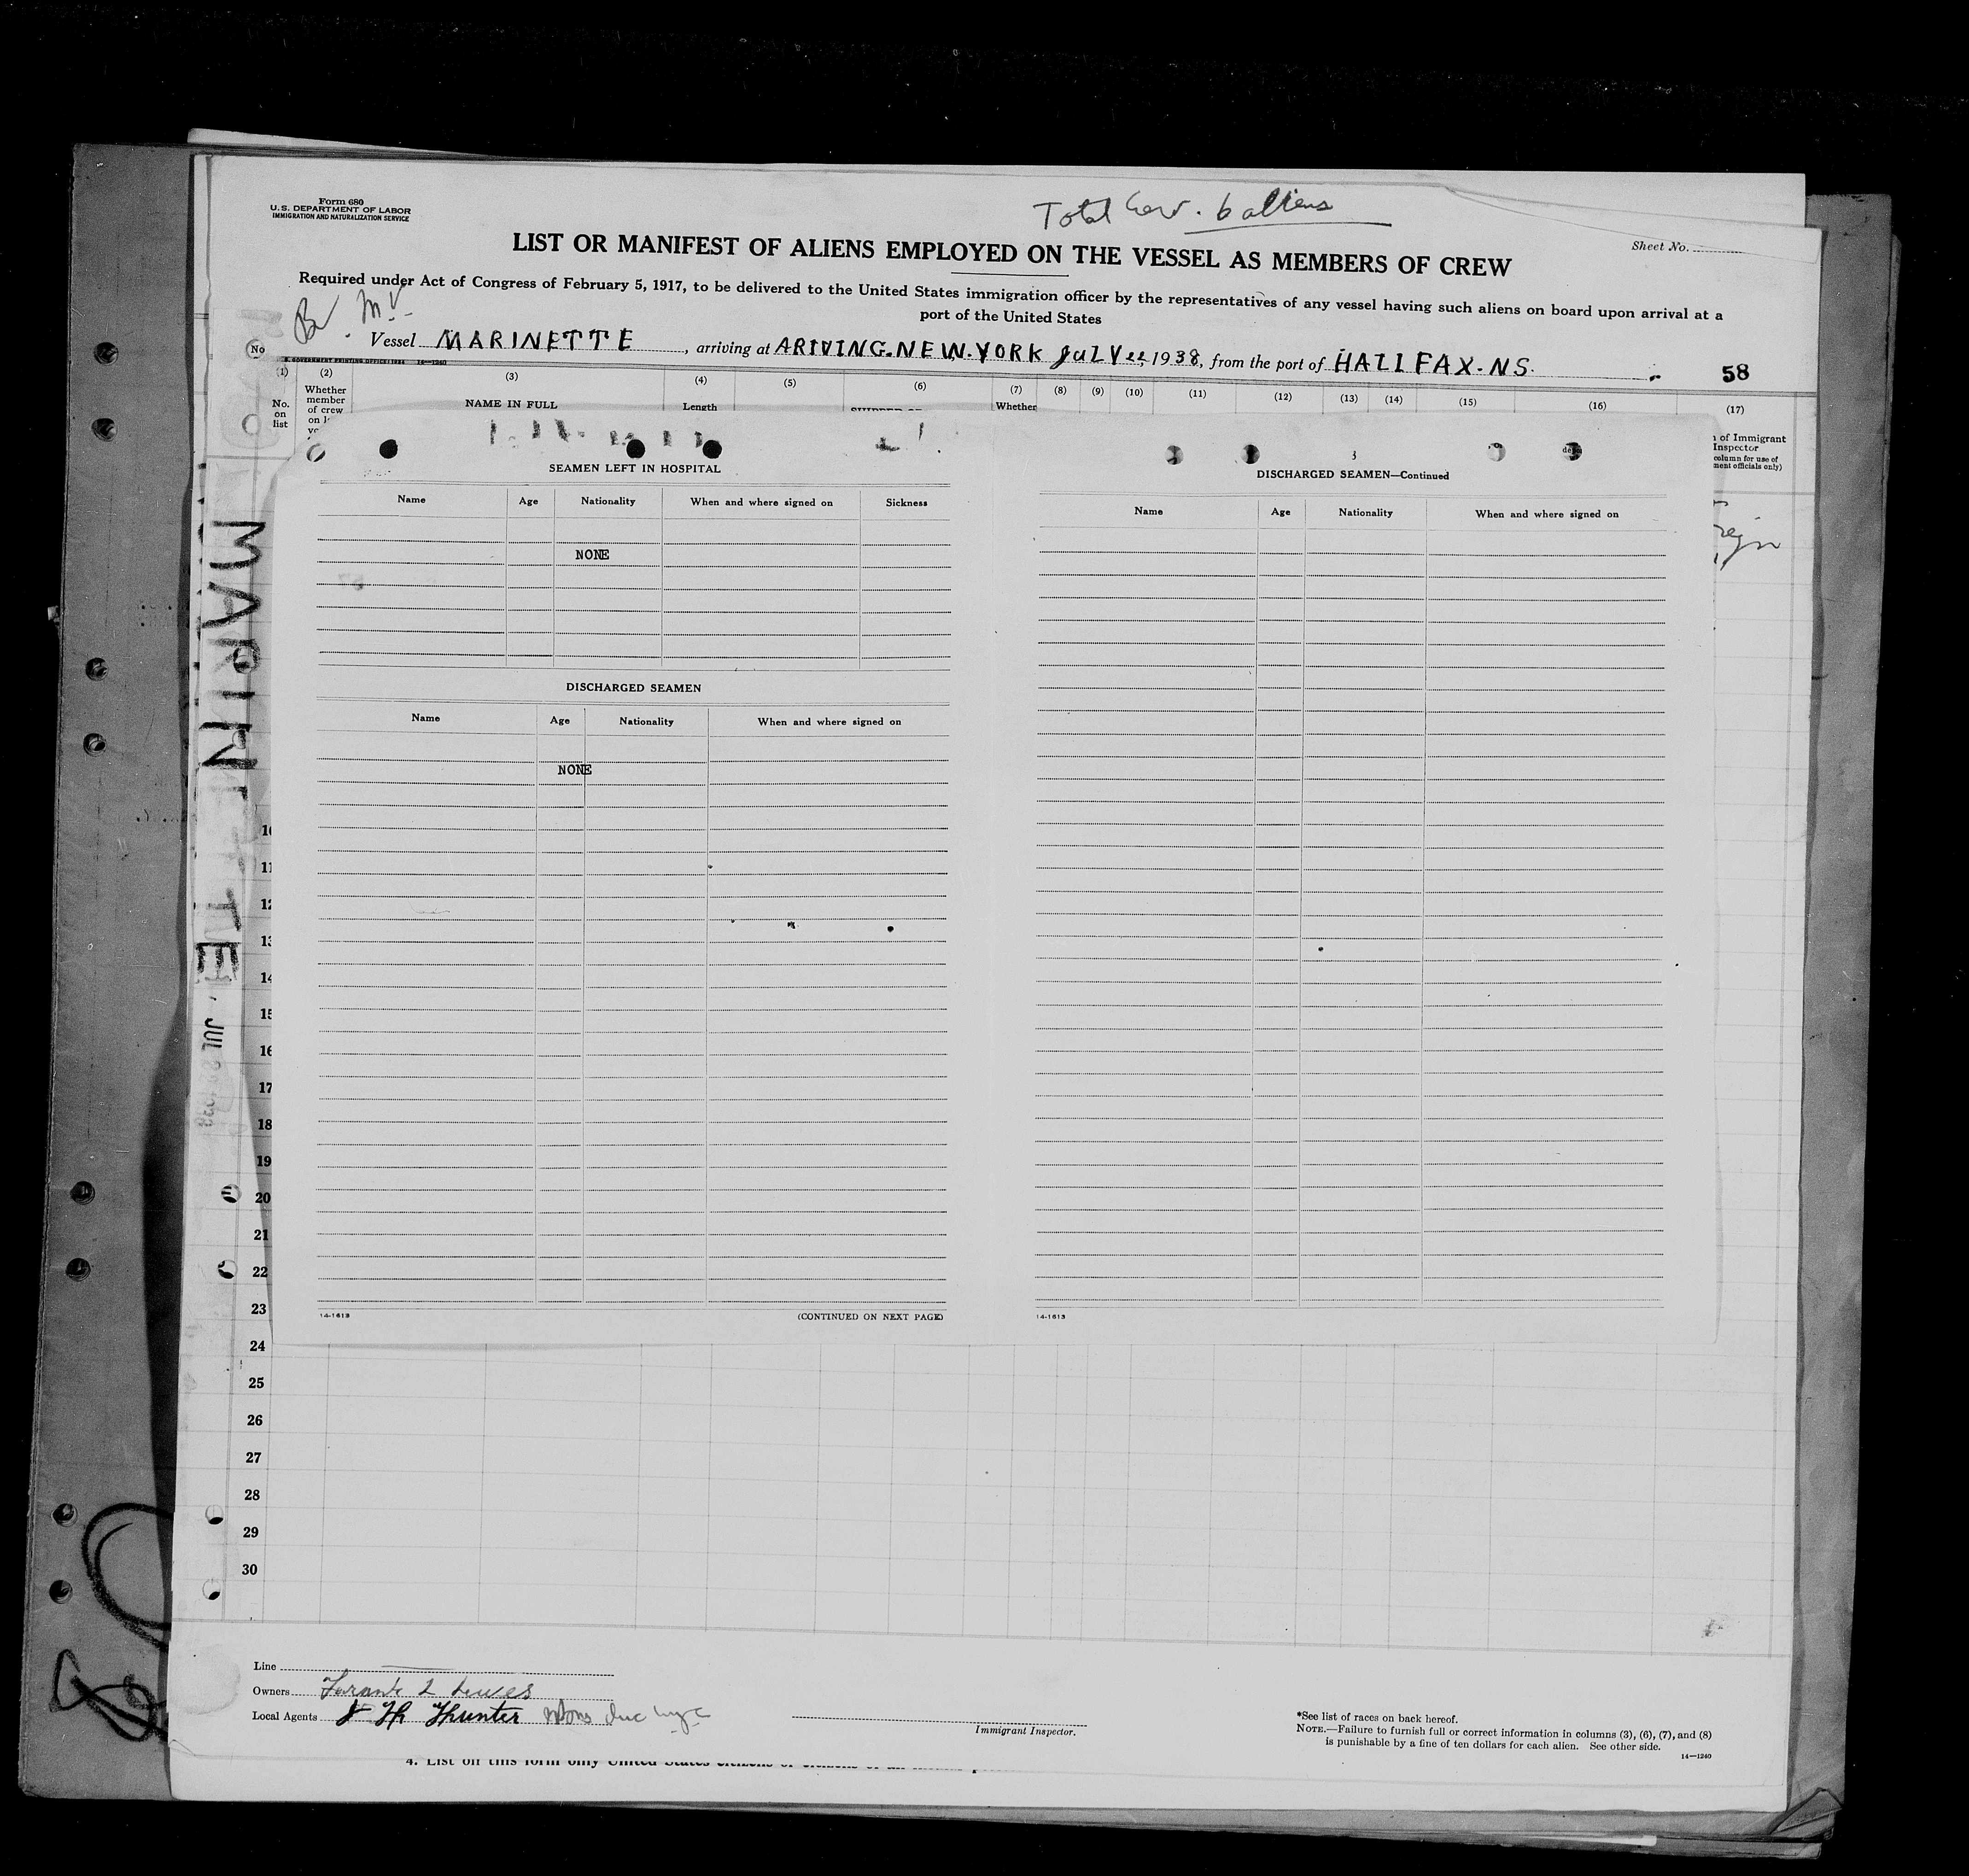 Form 680
U.S. DEPARTMENT OF LABOR
IMMIGRATION AND NATURALIZATION SERVICE
Total 6 aliens
Sheet No.
LIST OR MANIFEST OF ALIENS EMPLOYED ON THE VESSEL AS MEMBERS OF CREW
Required under Act of Congress of February 5, 1917, to be delivered to the United States immigration officer by the representatives of any vessel having such aliens on board upon arrival at a
port of the United States
Br M.V.
Vessel MARINETTE, arriving at ARIVING.NEW.YORK JULY 22, 1938, from the port of HALIFAX-NS.
58
No
U. S. GOVERNMENT PRINTING OFFICE: 1934 14—1240
(1) (2) (3) (4) (5) (6) (7) (8) (9) (10) (11) (12) (13) (14) (15) (16) (17)
No. on list
Whether member of crew on
NAME IN FULL
Length
Whether
of Immigrant
Inspector
column for use of
ment officials only)
SEAMEN LEFT IN HOSPITAL
Name Age Nationality When and where signed on Sickness
NONE
DISCHARGED SEAMEN
Name Age Nationality When and where signed on
NONE
14-1613
(CONTINUED ON NEXT PAGE)
DISCHARGED SEAMEN—Continued
Name Age Nationality When and where signed on
14-1613
MARINETTE
JUL
10
11
12
13
14
15
16
17
18
19
20
21
22
23
24
25
26
27
28
29
30
Line
Owners
Local Agents Hunter
Immigrant Inspector.
*See list of races on back hereof.
NOTE.—Failure to furnish full or correct information in columns (3), (6), (7), and (8)
is punishable by a fine of ten dollars for each alien. See other side.
14—1240
4. List on this form only United States citizens or citizens of